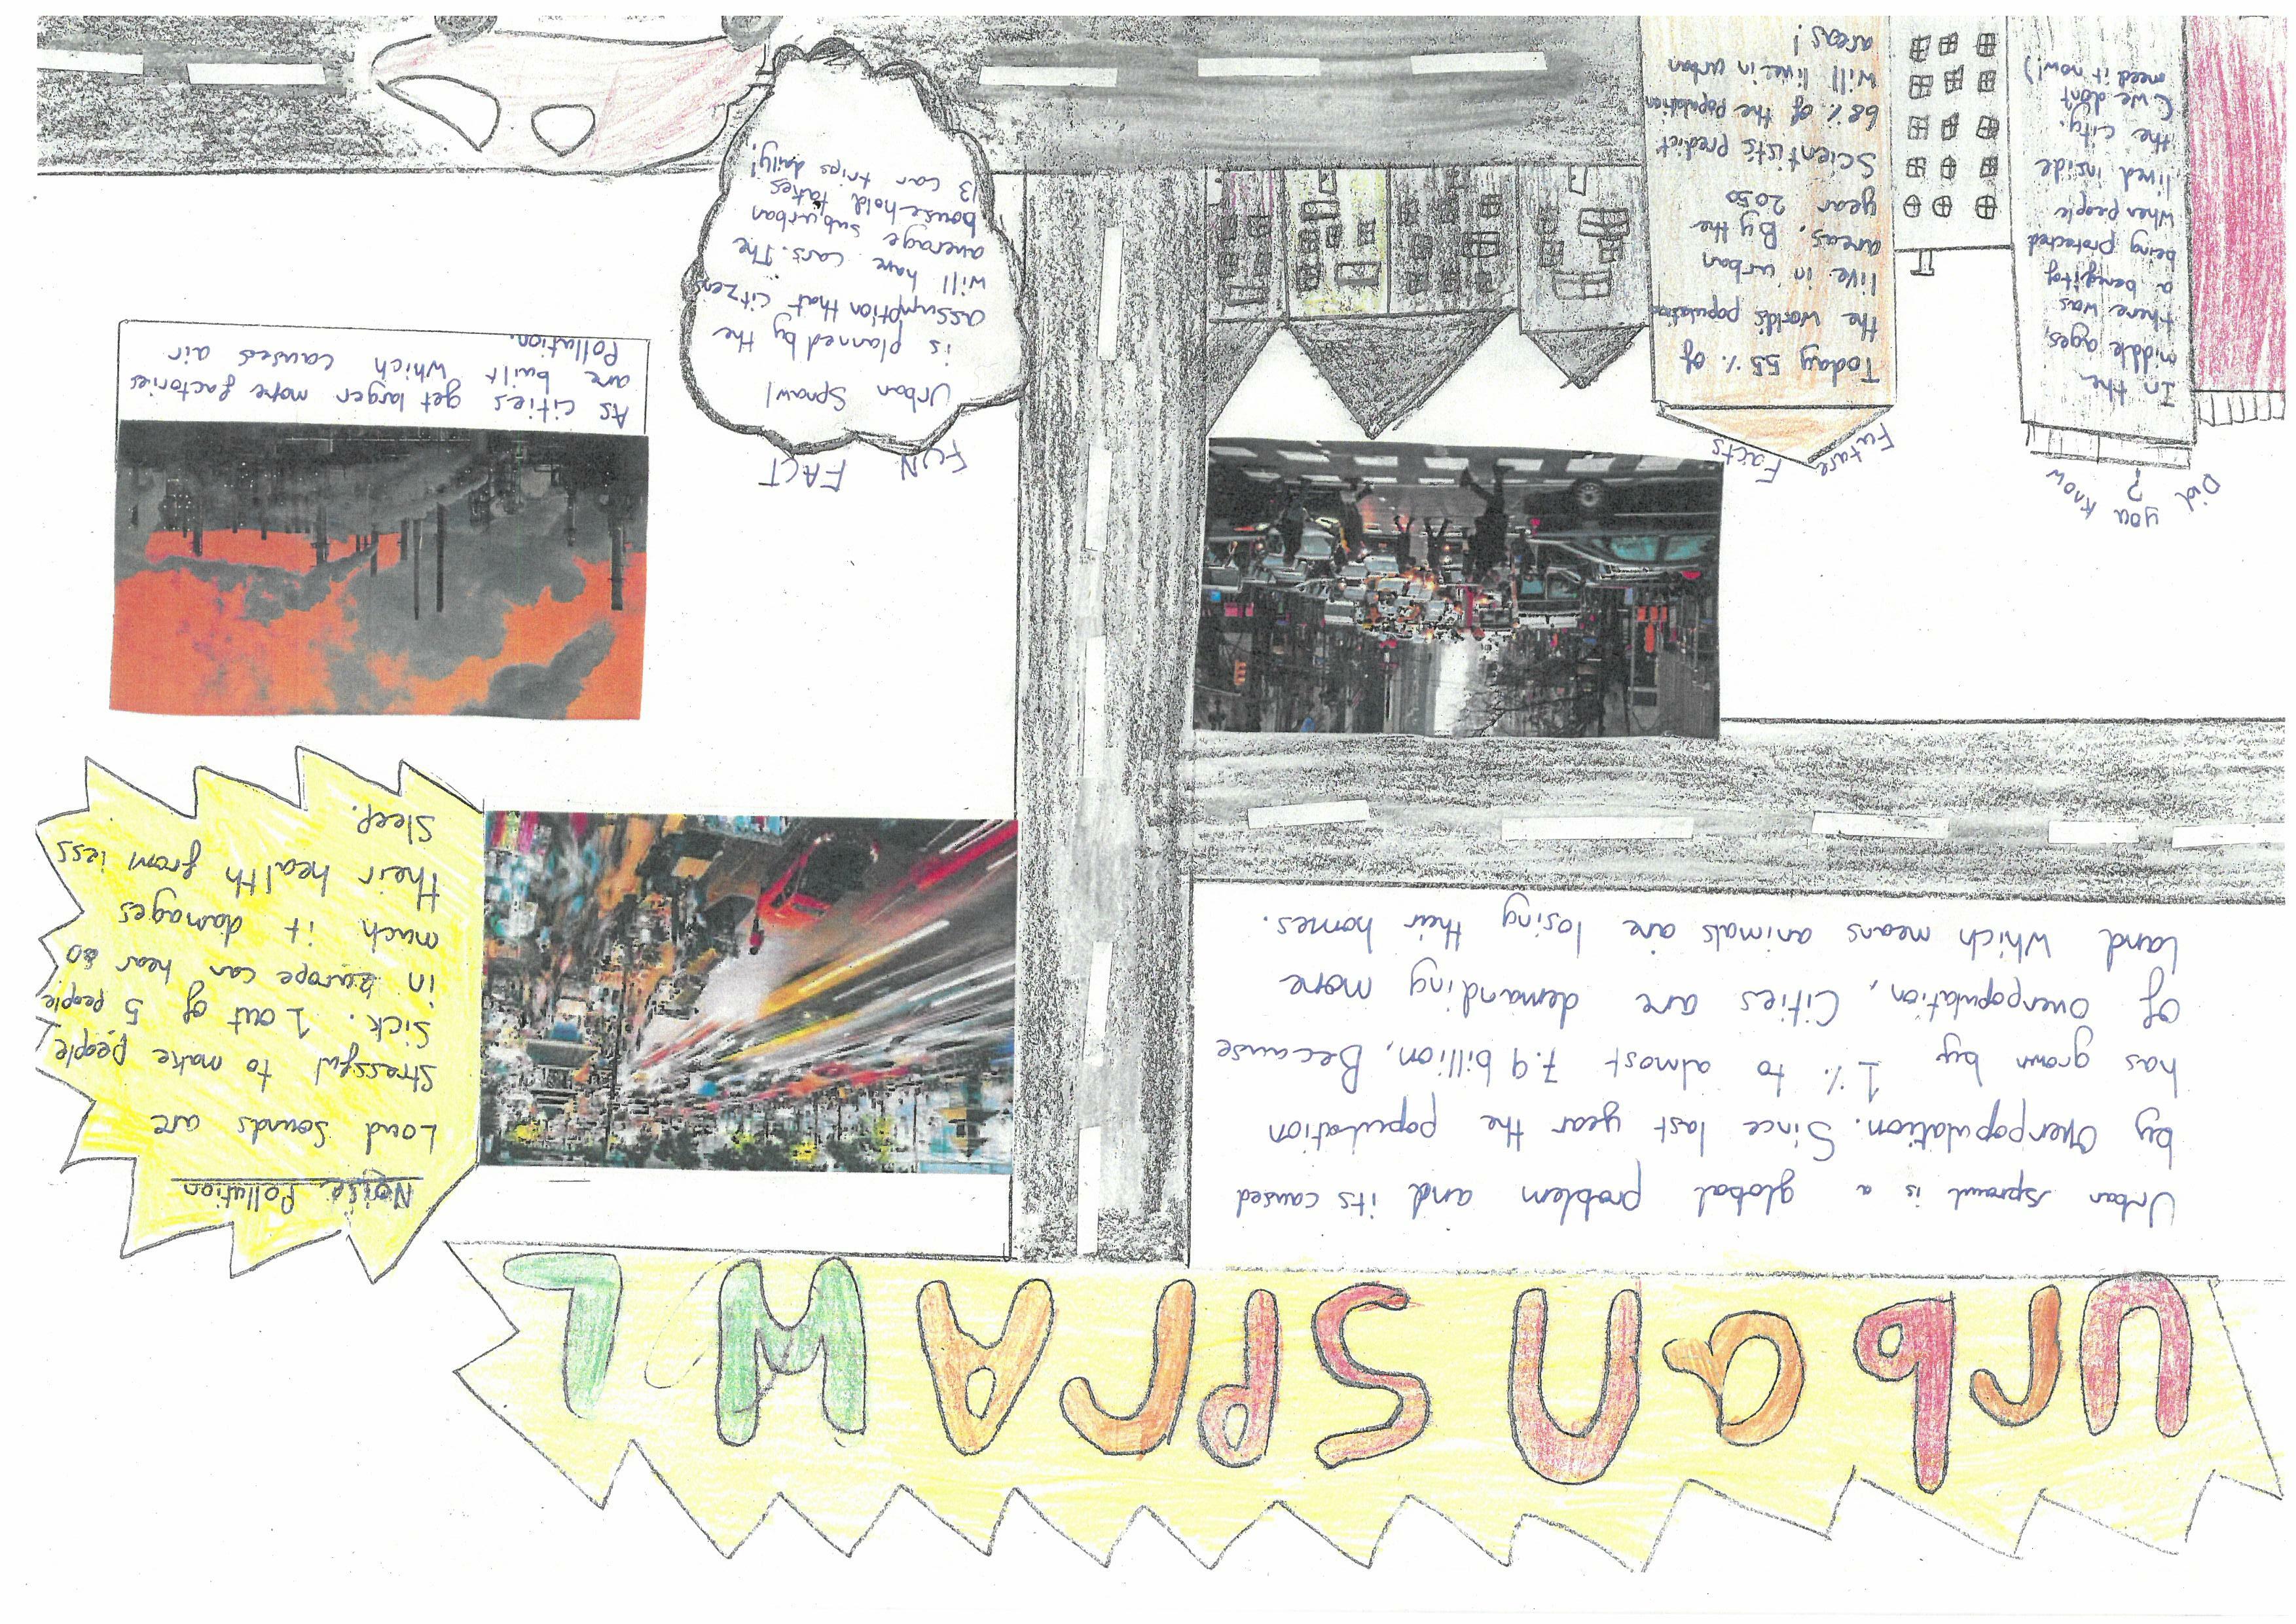 Urban SPrAWL
Urban sprawl is a global problem and its caused
by Overpopulation. Since last year the population
has grown by 1% to almost 7.9 billion. Because
of overpopulation, Cities are demanding more
Land which means animals are losing their homes.
Noise Pollution
Loud sounds are
stressful to make people
sick. 1 out of 5 people
in Europe can hear so
much it damages
their health from less
sleep.
Did you know
?
In the
middle ages,
there was
a benefit of
being protected
when people
lived inside
the city.
(we don't
need it now!)
Future Facts
Today 55% of
the world's population
live in urban
areas. By the
year 2050
Scientists predict
68% of the population
will live in urban
areas!
FUN FACT
Urban Sprawl
is planned by the
assumption that citizens
will have cars. The
average suburban
household takes
13 car trips daily!
As cities get larger more factories
are built which causes air
Pollution.